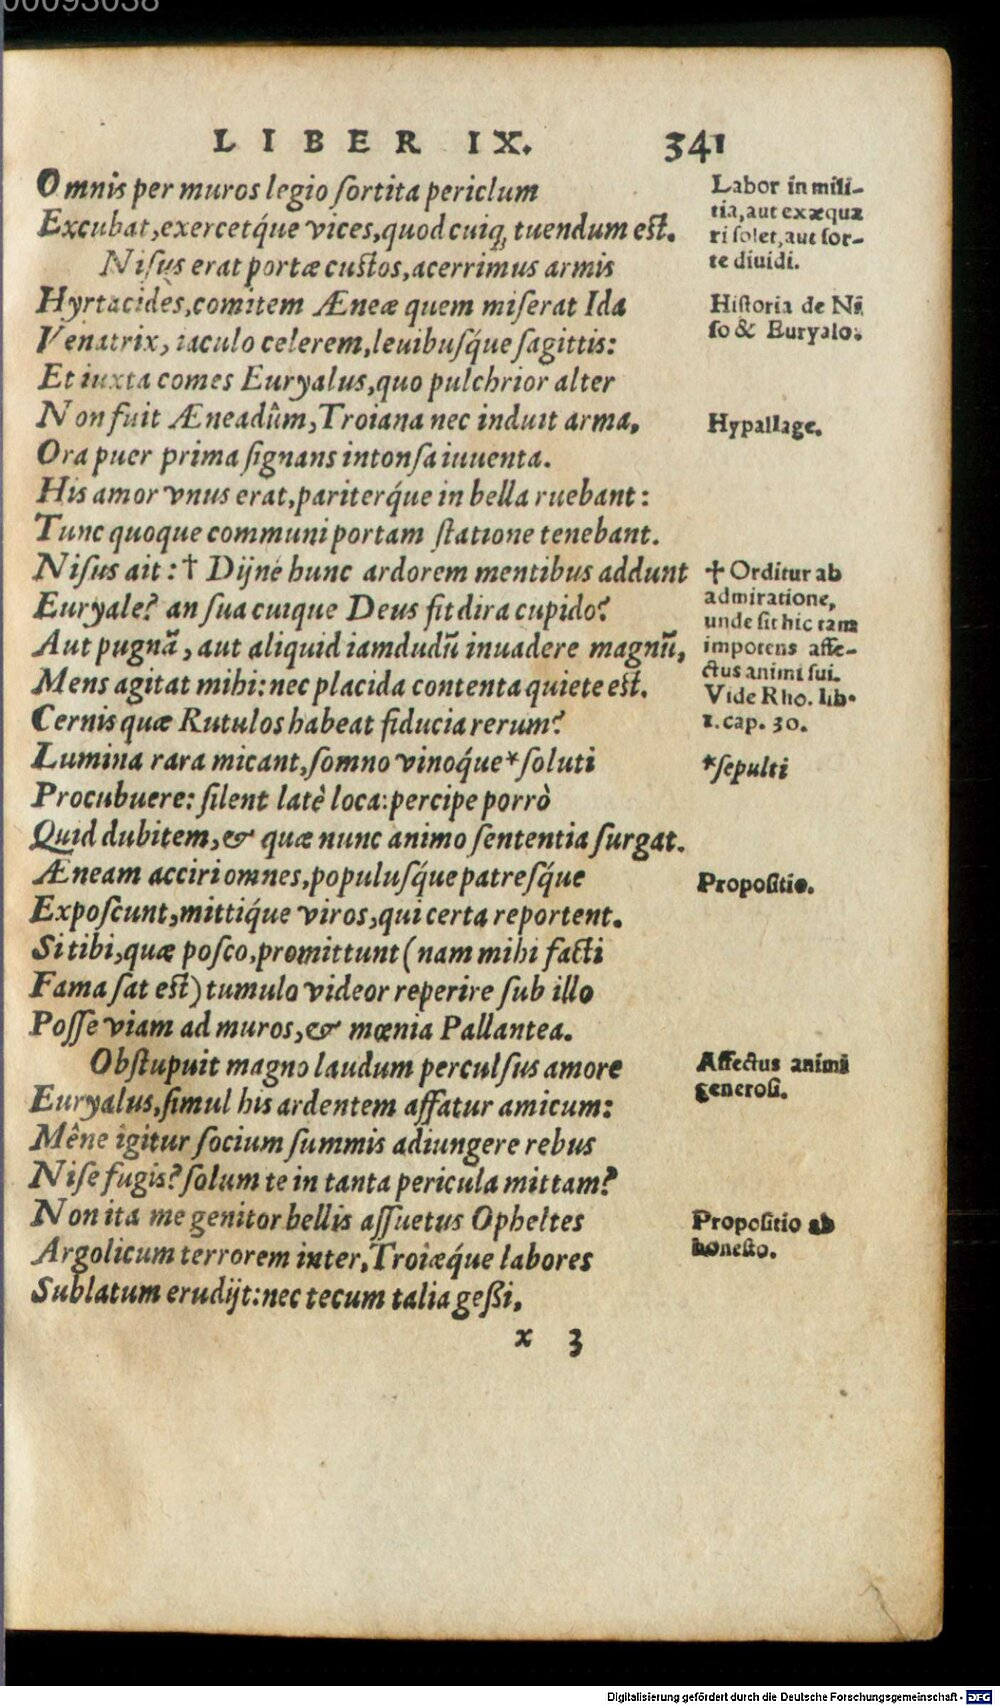 00093038
LIBER IX. 341
Omnis per muros legio ſortita periclum
Excubat, exercetq́ue vices, quod cuiq; tuendum eſt.
Niſus erat portæ cuſtos, acerrimus armis
Hyrtacidès, comitem Æneæ quem miſerat Ida
Venatrix, iaculo celerem, leuibuſq́ue ſagittis:
Et iuxta comes Euryalus, quo pulchrior alter
Non fuit Æneadûm, Troiana nec induit arma,
Ora puer prima ſignans intonſa iuuenta.
His amor vnus erat, pariterq́ue in bella ruebant:
Tunc quoque communi portam ſtatione tenebant.
Niſus ait: † Dijné hunc ardorem mentibus addunt
Euryale? an ſua cuique Deus fit dira cupido?
Aut pugnã, aut aliquid iamdudũ inuadere magnũ,
Mens agitat mihi: nec placida contenta quiete eſt.
Cernis quæ Rutulos habeat fiducia rerum?
Lumina rara micant, ſomno vinoq́ue * ſoluti
Procubuere: ſilent latè loca: percipe porrò
Quid dubitem, & quæ nunc animo ſententia ſurgat.
Æneam acciri omnes, populuſq́ue patreſq́ue
Expoſcunt, mittiq́ue viros, qui certa reportent.
Si tibi, quæ poſco, promittunt (nam mihi facti
Fama ſat eſt) tumulo videor reperire ſub illo
Poſſe viam ad muros, & mœnia Pallantea.
Obſtupuit magno laudum perculſus amore
Euryalus, ſimul his ardentem affatur amicum:
Mêne igitur ſocium ſummis adiungere rebus
Niſe fugis? ſolum te in tanta pericula mittam?
Non ita me genitor bellis aſſuetus Opheltes
Argolicum terrorem inter, Troiæq́ue labores
Sublatum erudijt: nec tecum talia geßi,
x 3
Labor in mili-
tia, aut exæqua
ri ſolet, aut ſor-
te diuidi.
Hiſtoria de Ni
ſo & Euryalo.
Hypallage.
† Orditur ab
admiratione,
unde ſit hic tam
impotens affe-
ctus animi ſui.
Vide Rho. lib.
1. cap. 30.
*ſepulti
Propoſitio.
Affectus animi
generoſi.
Propoſitio ab
honeſto.
Digitalisierung gefördert durch die Deutsche Forschungsgemeinschaft - DFG